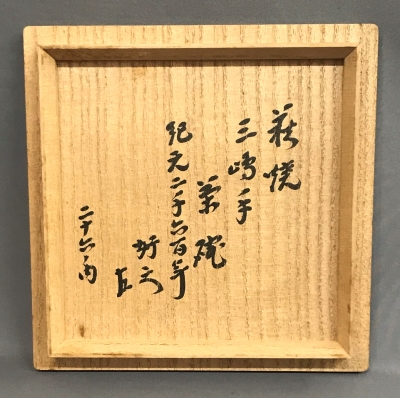 萩焼
三嶋手
茶碗
紀元二千六百年
好之
二十六内